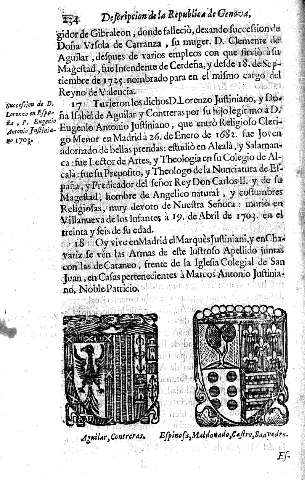 234 Descripcion de la Republica de Genova,
gidor de Gibraleon, donde falleciò, dexando succession de
Doña Vrsola de Carranza, su muger. D. Clemente de
Aguilar, despues de varios empleos con que sirviò à su
Magestad, fue Intendente de Cerdeña, y desde 18. de Sep-
tiembre de 1725. nombrado para en el mismo cargo del
Reyno de Valencia.
Succession de D.
Lorenzo en Espa-
ña, y P. Eugenio
Antonio Justinia-
no 1703.
17 Tuvieron los dichos D. Lorenzo Justiniano, y Do-
ña Isabel de Aguilar y Contreras por su hijo legitimo à D.
Eugenio Antonio Justiniano, que entrò Religioso Cleri-
go Menor en Madrid à 26. de Enero de 1682. fue Joven
adornado de bellas prendas: estudiò en Alcalà, y Salaman-
ca: fue Lector de Artes, y Theologia en su Colegio de Al-
calà: fue su Preposito, y Theologo de la Nunciatura de Es-
paña, y Predicador del señor Rey Don Carlos II. y de su
Magestad, hombre de Angelico natural, y costumbres
Religiosas, muy devoto de Nuestra Señora: muriò en
Villanueva de los Infantes à 19. de Abril de 1703. en el
treinta y seis de su edad.
18 Oy vive en Madrid el Marquès Justiniani, y en Cha-
variz se vèn las Armas de este lustroso Apellido juntas
con las de Cataneo, frente de la Iglesia Colegial de San
Juan, en Casas pertenecientes à Marcos Antonio Justinia-
no, Noble Patricio.
Aguilar, Contreras. Espinosa, Maldonado, Castro, Saavedra.
Es-